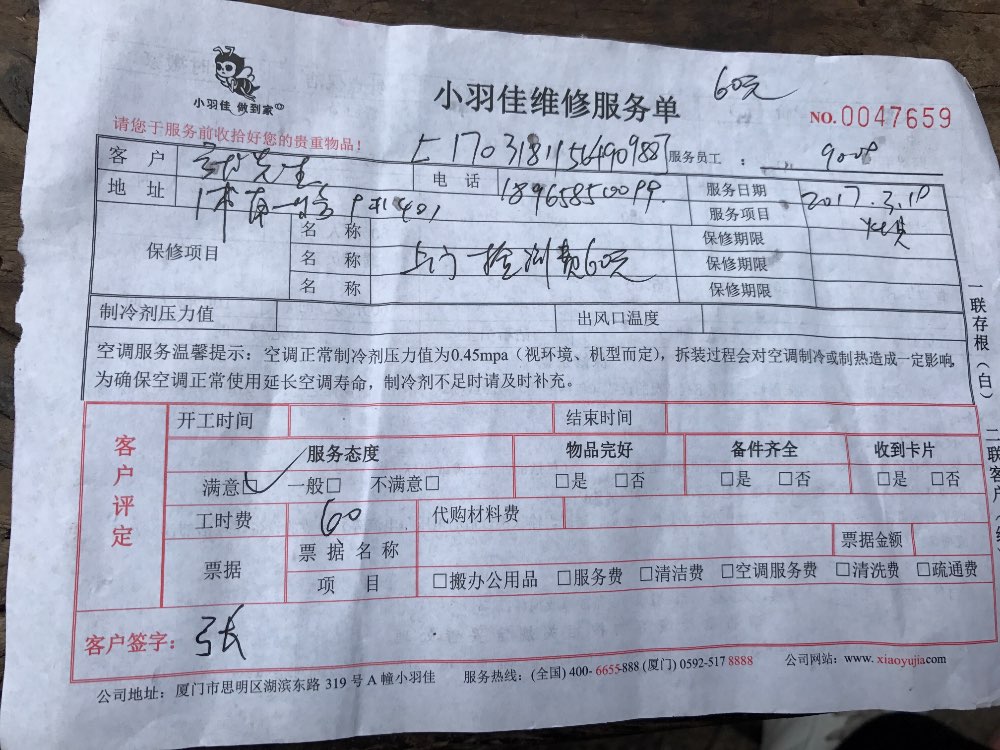 小羽佳 做到家
小羽佳维修服务单
60元
NO.0047659
请您于服务前收拾好您的贵重物品！
客 户 先生
服务员工：9008
地 址
电 话 18965850099.
服务日期 2017.3.18
服务项目 灶具
保修项目
名 称
保修期限
名 称 上门检测费60元
保修期限
名 称
保修期限
制冷剂压力值
出风口温度
空调服务温馨提示：空调正常制冷剂压力值为0.45mpa（视环境、机型而定），拆装过程会对空调制冷或制热造成一定影响
为确保空调正常使用延长空调寿命，制冷剂不足时请及时补充。
一联存根（白）
二联客户
客户评定
开工时间
结束时间
服务态度
物品完好
备件齐全
收到卡片
满意□ 一般□ 不满意□
□是 □否
□是 □否
□是 □否
工时费 60
代购材料费
票据
票 据 名 称
票据金额
项 目
□搬办公用品 □服务费 □清洁费 □空调服务费 □清洗费 □疏通费
客户签字：张
公司地址：厦门市思明区湖滨东路 319 号 A 幢小羽佳
服务热线：(全国) 400-6655-888 (厦门) 0592-517 8888
公司网站：www.xiaoyujia.com